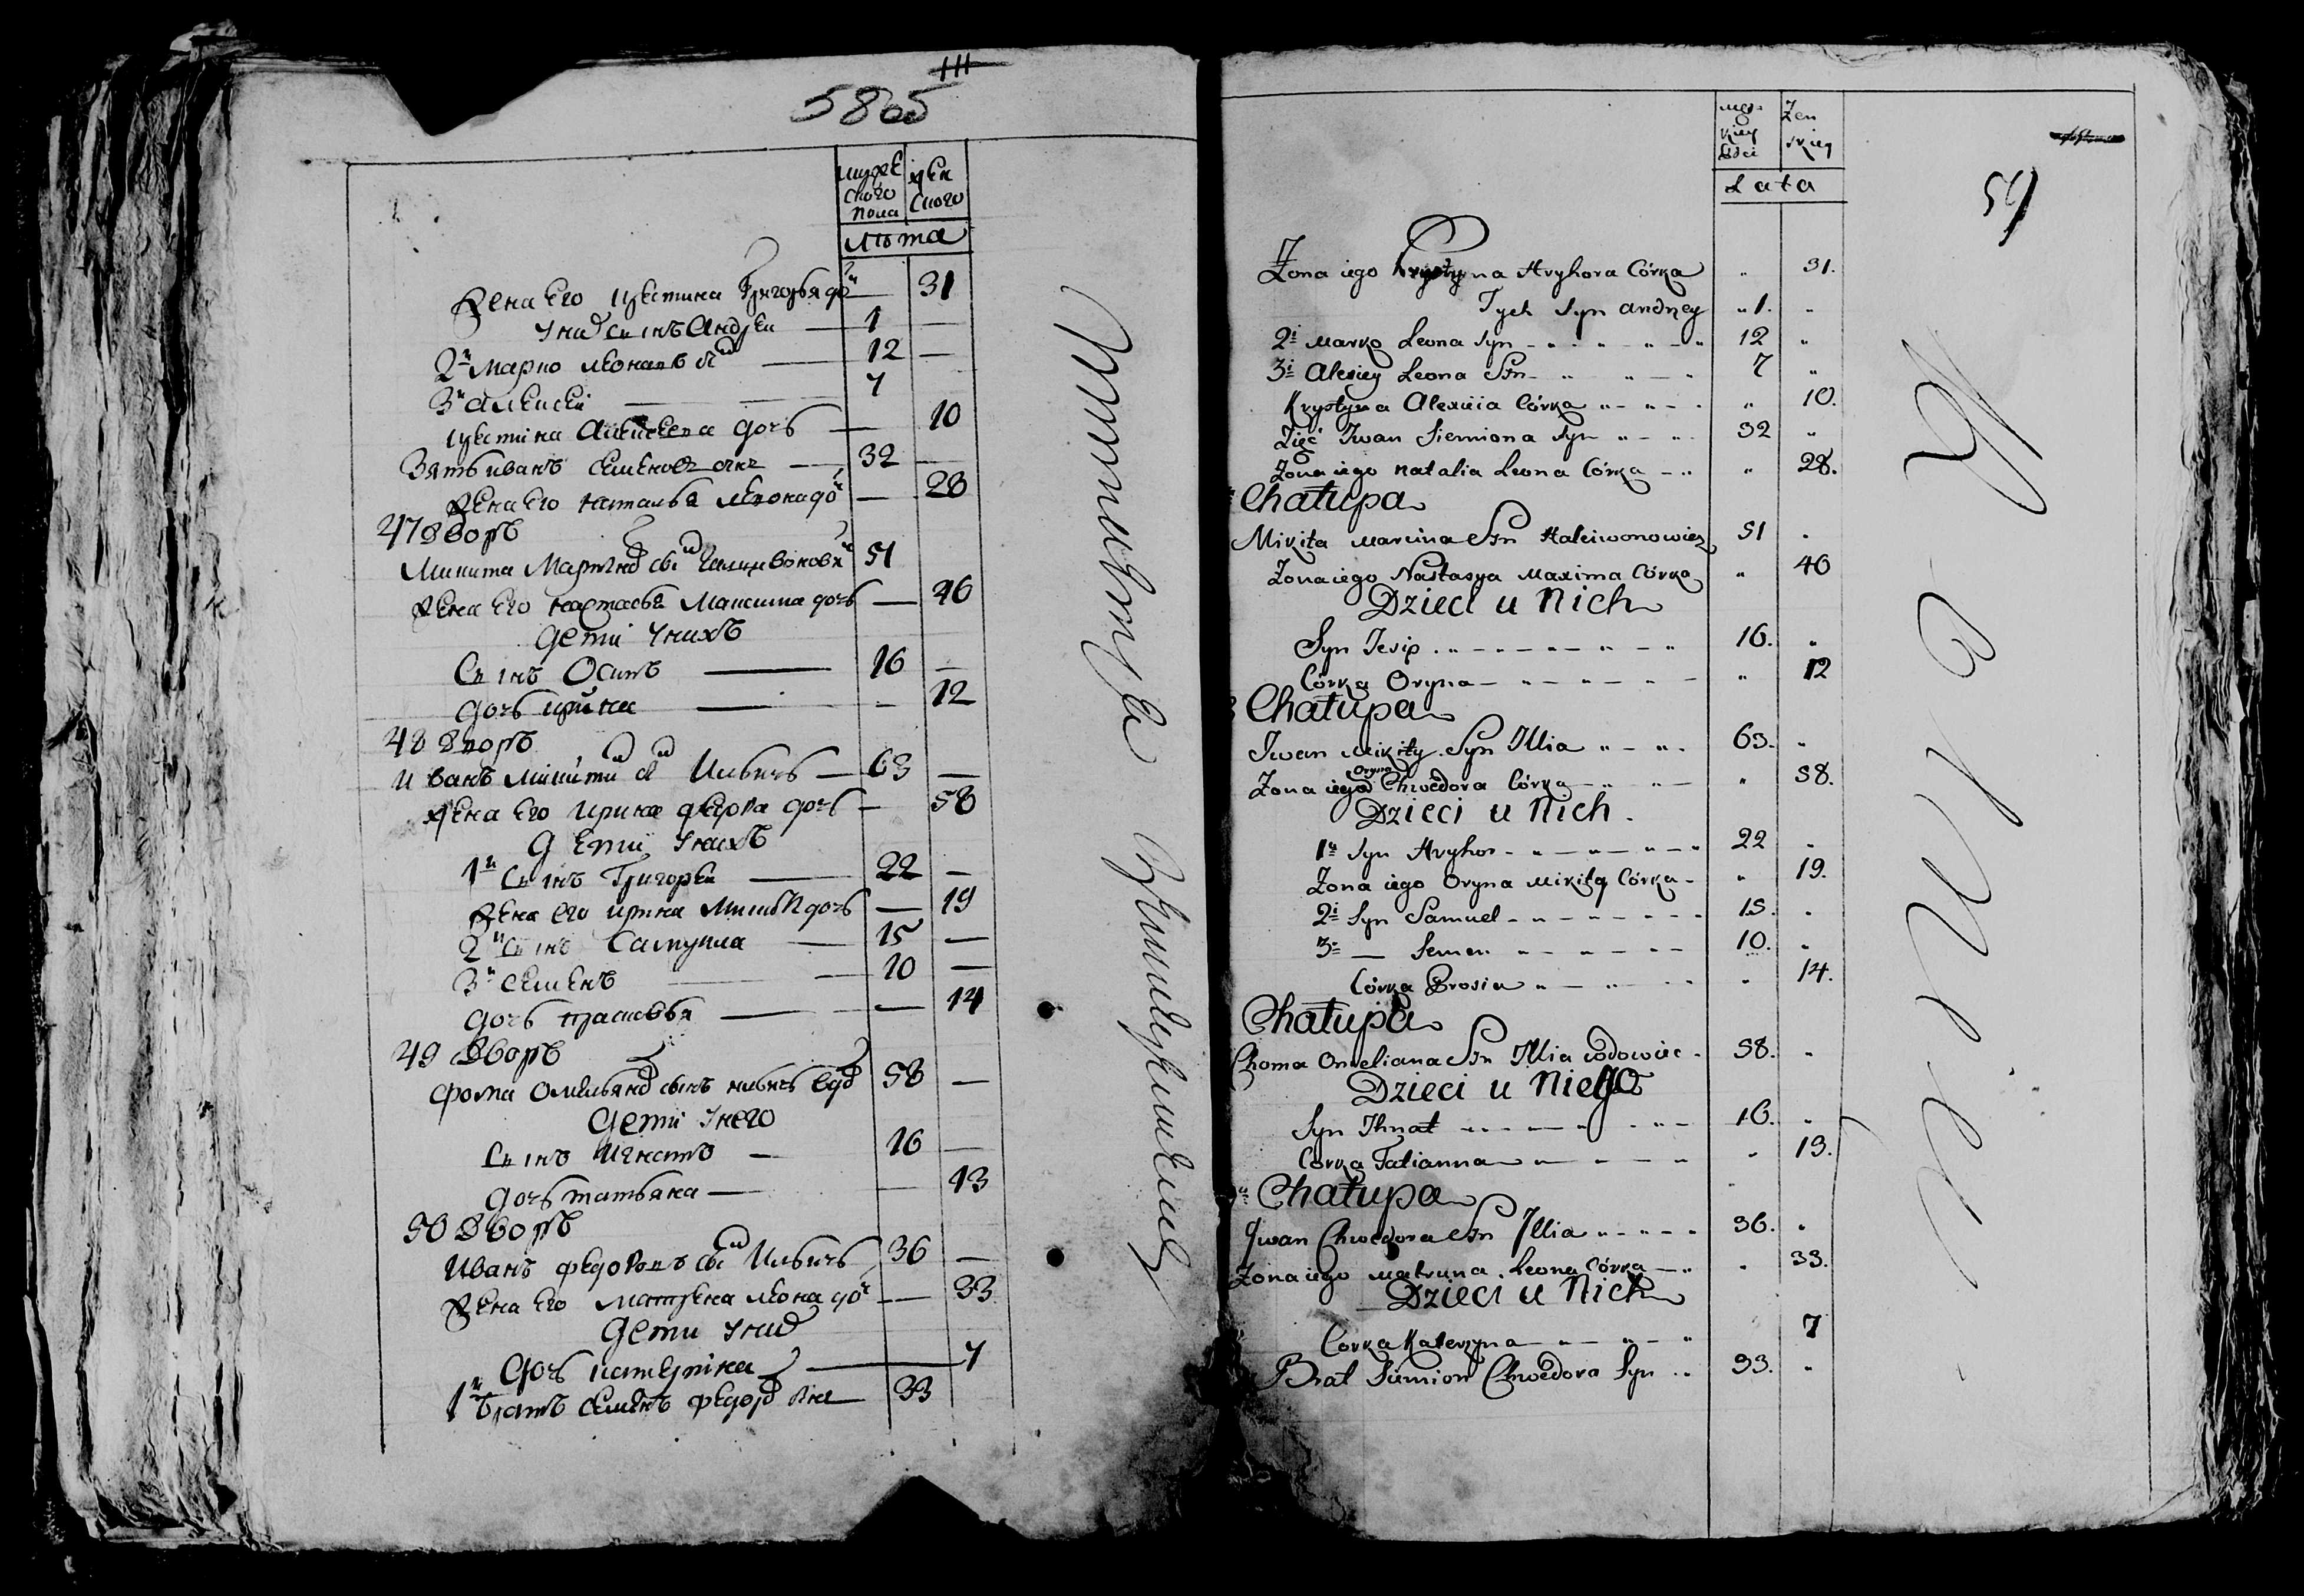 5805
мужескаго пола
женскаго
Лѣта
Жена его Кристина Григорья доч 31
У них сынъ Андрей 1
2й Марко Леоновъ сн 12
3й Алексей 7
Кристина Алексеева дочь 10
Зять иванъ Семеновъ сынъ 32
Жена его наталья Леона доч 28
47 Дворъ
Микита Мартина сн 51
Жена его настасья Максима дочь 46
дети у нихъ
Сынъ Осипъ 16
дочь ирина 12
48 Дворъ
Иванъ Микити сн Ильичь 63
жена его ирина федора дочь 58
дети у нихъ
1й Сынъ Григорей 22
Жена его ирина Микити дочь 19
2й Сынъ Самуила 15
3й Семенъ 10
дочь прасковья 14
49 Дворъ
фома Омельянов сынъ ильичь вдо 58
дети у него
Сынъ Игнатъ 16
дочь татьяна 13
50 Дворъ
Иванъ федоровъ сн Ильичь 36
Жена его Матрена леона доч 33
дети у них
дочь катерина 7
1й братъ Семенъ федоро 33
męzkiey płci
Zenskiey
Lata
59
Zona iego Krystyna Hryhora Córka " 31.
Tych Syn andrzey " 1. "
2i Marko Leona Syn 12 "
3i Alexiey Leona Syn 7 "
Krystyna Alexieia Córka " 10.
Zięć Iwan Siemiona Syn 32 "
Zona iego Natalia Leona Córka " 28.
Chałupa
Mikita Marcina Syn Haleiwonowicz 51 "
Zona iego Nastasya Maxima Córka " 46
Dzieci u Nich
Syn Jesip 16. "
Córka Oryna " 12
Chałupa
Iwan Mikity Syn Illia 63. "
Zona iego Oryna Chwedora Córka " 58.
Dzieci u Nich.
1y Syn Hryhor 22 "
Zona iego Oryna Mikity Córka " 19.
2i Syn Samuel 15. "
3i — Semen 10. "
Córka Prosia " 14.
Chałupa
Choma Omeliana Syn Illia wdowiec 58. "
Dzieci u Niego
Syn Ihnat 16. "
Córka Tatianna " 13.
Chałupa
Iwan Chwedora Syn Illia 36. "
Zona iego Matruna Leona Córka " 33.
Dzieci u Nich
Córka Katerzyna 7
Brat Siemion Chwedora Syn 33. "